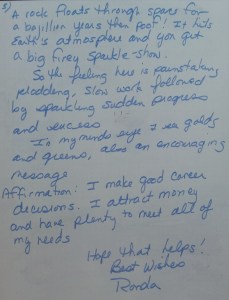 3) A rock floats through space for
a bajillion years then poof! It hits
Earth's atmosphere and you get
a big firey sparkle-show.
So the feeling here is painstaking
plodding, slow work followed
by sparkling sudden progress
and success
In my minds eye I see golds
and greens, also an encouraging
message
Affirmation: I make good career
decisions. I attract money
and have plenty to meet all of
my needs
Hope that helps!
Best Wishes
Ronda